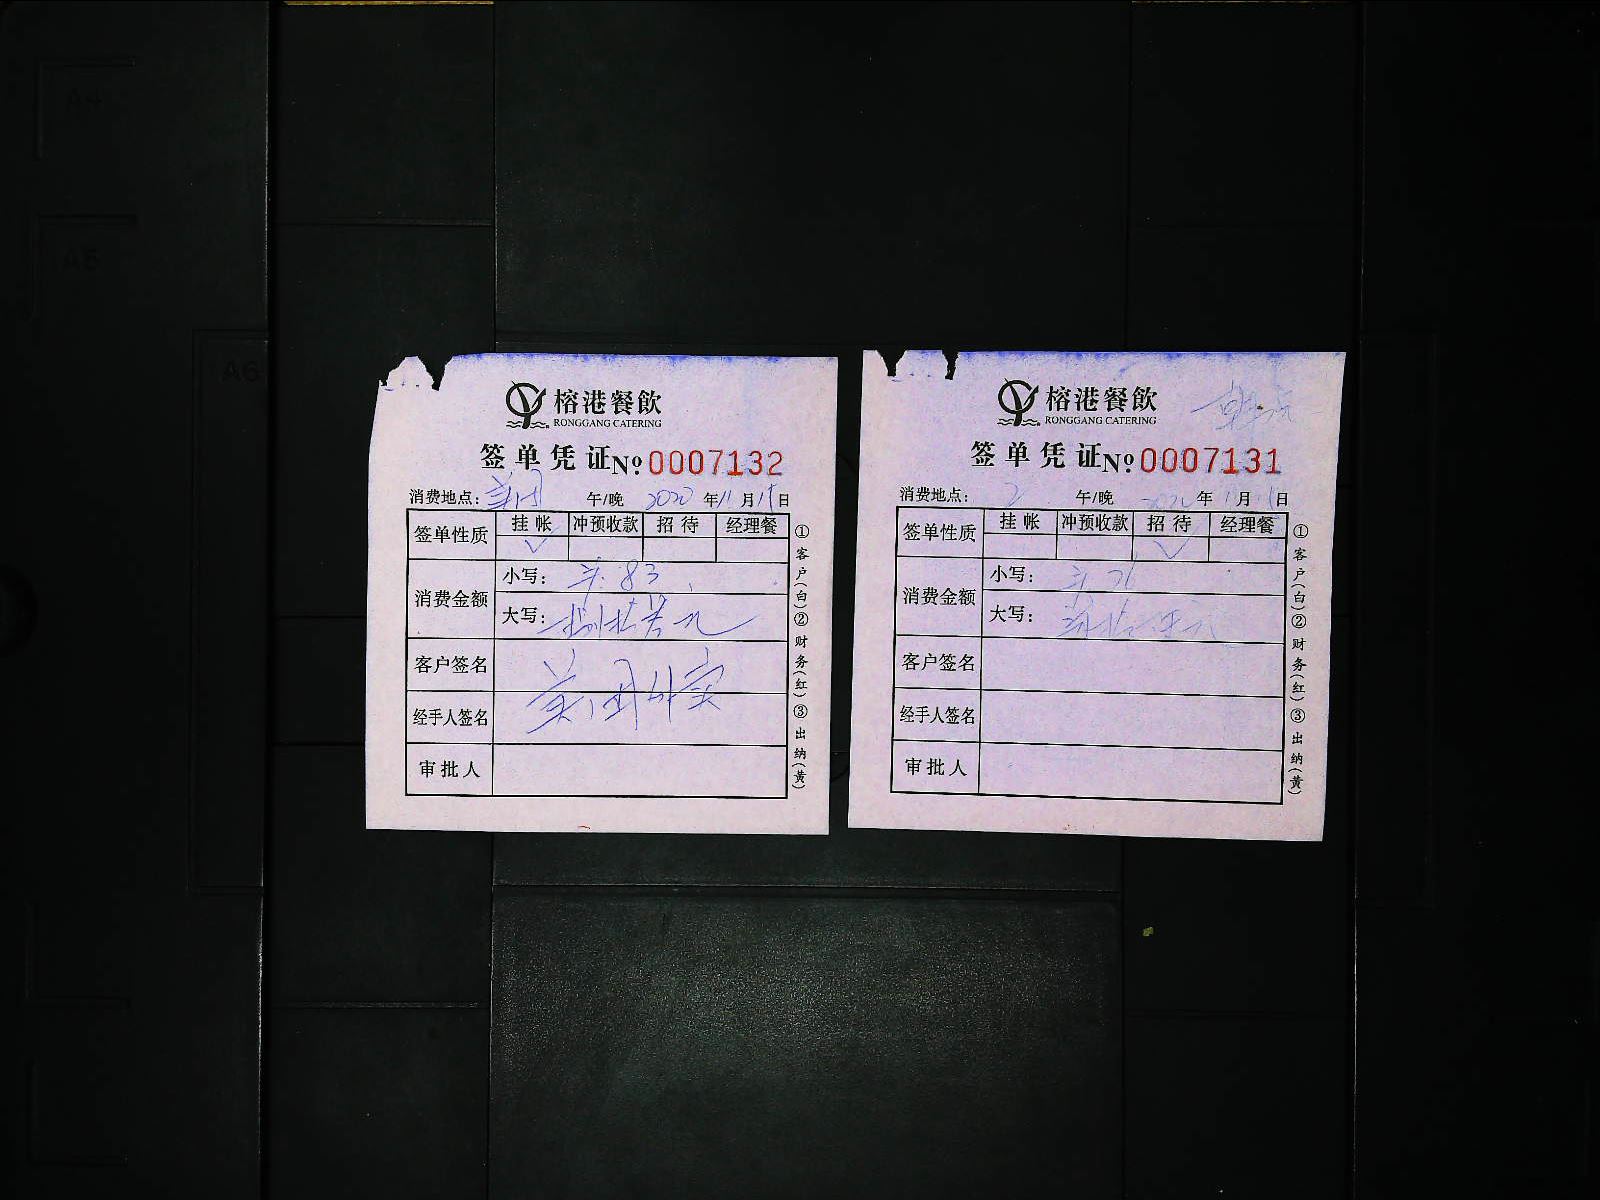 A4
A5
A6
榕港餐飲
RONGGANG CATERING
签单凭证№0007132
消费地点：美团 午/晚 2020年11月15日
签单性质 挂帐 冲预收款 招待 经理餐
✓
消费金额 小写： 83
大写：
客户签名 美团外卖
经手人签名
审批人
①客户(白)②财务(红)③出纳(黄)
榕港餐飲
RONGGANG CATERING
签单凭证№0007131
消费地点： 2 午/晚 年11月 日
签单性质 挂帐 冲预收款 招待 经理餐
✓
消费金额 小写：
大写：
客户签名
经手人签名
审批人
①客户(白)②财务(红)③出纳(黄)